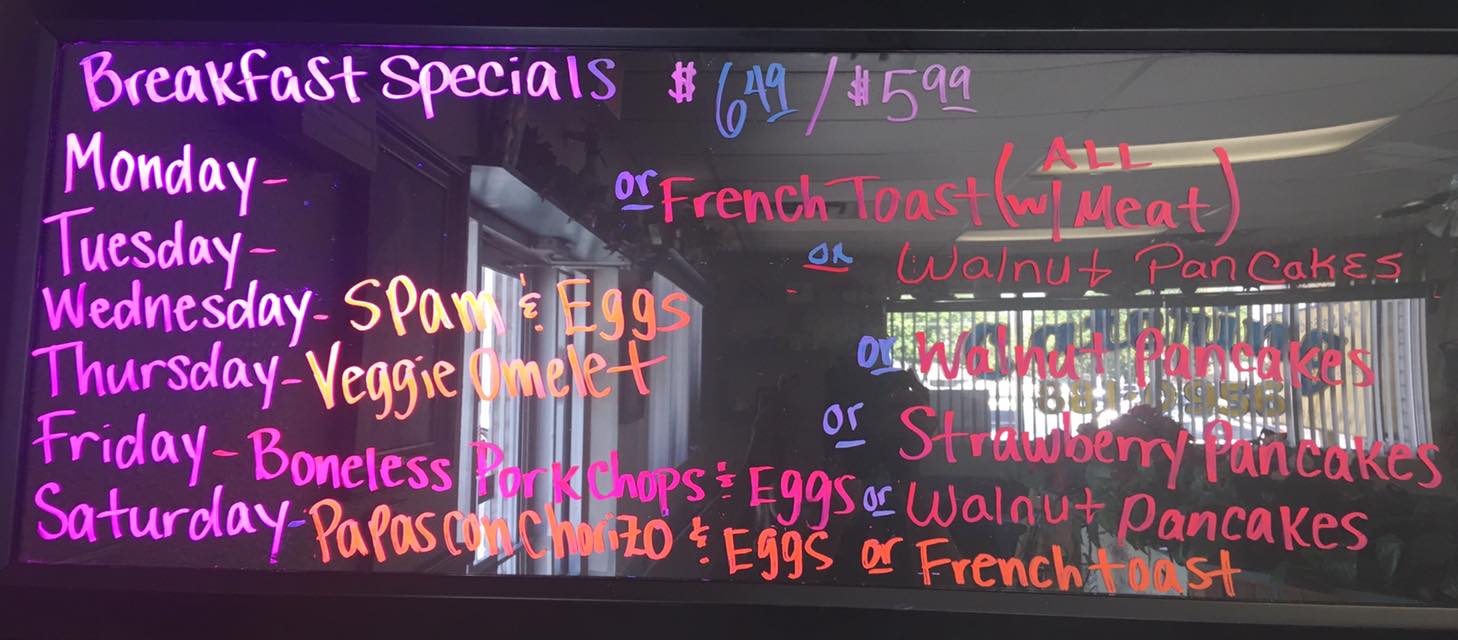 Breakfast Specials $6.49 / $5.99
ALL
Monday - or French Toast (w/ Meat)
Tuesday - or Walnut PanCakes
Wednesday - Spam & Eggs or Walnut Pancakes
Thursday - Veggie Omelet or Strawberry Pancakes
Friday - Boneless Pork Chops & Eggs or Walnut Pancakes
Saturday - Papas con Chorizo & Eggs or French toast